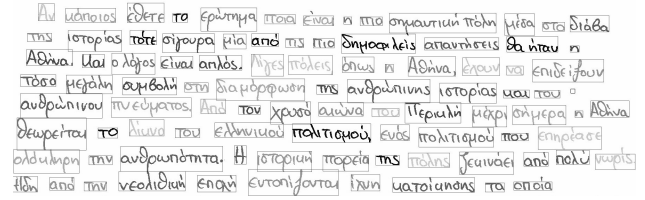 Αν κάποιος έθετε το ερώτημα ποια είναι η πιο σημαντική πόλη μέσα στο διάβα
της ιστορίας τότε σίγουρα μία από τις πιο δημοφιλείς απαντήσεις θα ήταν η
Αθήνα. Και ο λόγος είναι απλός. Λίγες πόλεις όπως η Αθήνα, έχουν να επιδείξουν
τόσο μεγάλη συμβολή στη διαμόρφωση της ανθρώπινης ιστορίας και του
ανθρώπινου πνεύματος. Από τον χρυσό αιώνα του Περικλή μέχρι σήμερα η Αθήνα
θεωρείται το λίκνο του ελληνικού πολιτισμού, ενός πολιτισμού που επηρέασε
ολόκληρη την ανθρωπότητα. Η ιστορική πορεία της πόλης ξεκινάει από πολύ νωρίς
Ήδη από την νεολιθική εποχή εντοπίζονται ίχνη κατοίκησης τα οποία